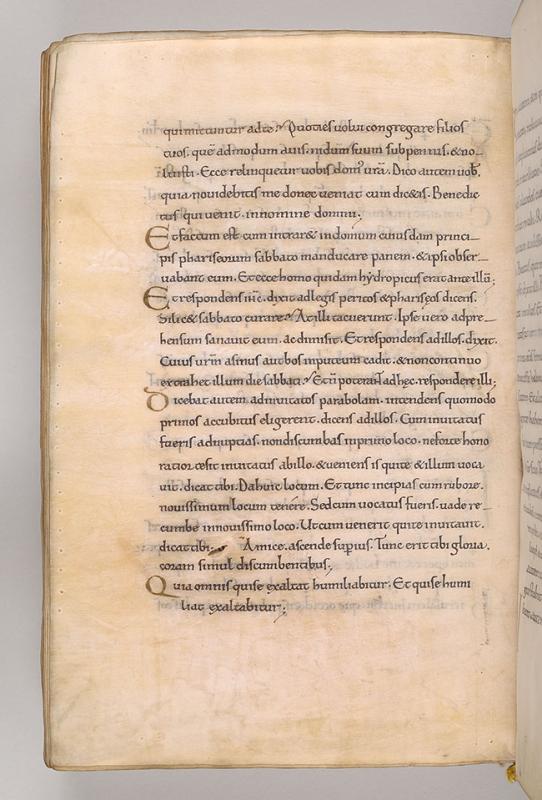 qui mittuntur ad te? Quotiens volui congregare filios
tuos. quē admodum avis. nidum suum sub pennis. & no
luisti. Ecce relinquetur vobis dom' vr̄a. Dico autem vob̄.
quia non videbitis me donec veniat cum dic&is. Benedic
tus qui venit. in nomine domini;
Et factum est cum intrar& in domum cuiusdam princi
pis phariseorum sabbato manducare panem. & ipsi obser
vabant eum. Et ecce homo quidam hydropicus erat ante illū;
Et respondens ih̄c. dixit ad legis peritos & phariseos dicens.
Si lic& sabbato curare? At illi tacuerunt. Ipse vero adpre
hensum sanavit eum. ac dimisit. Et respondens ad illos. dixit.
Cuius vr̄m asinus aut bos in puteum cadit. & non continuo
extrahet illum die sabbati? Et ū poterant ad hęc. respondere illi;
Dicebat autem ad invitatos parabolam. intendens quomodo
primos accubitus eligerent. dicens ad illos. Cum invitatus
fueris ad nuptias. non discumbas in primo loco. ne forte hono
ratior te sit invitatus ab illo. & veniens is qui te & illum voca
vit. dicat tibi. Da huic locum. Et tunc incipias cum rubore.
novissimum locum tenere. Sed cum vocatus fueris. vade re
cumbe in novissimo loco. Ut cum venerit qui te invitavit.
dicat tibi. Amice. ascende superius. Tunc erit tibi gloria.
coram simul discumbentibus;
Quia omnis qui se exaltat humiliabitur. Et qui se humi
liat exaltabitur;